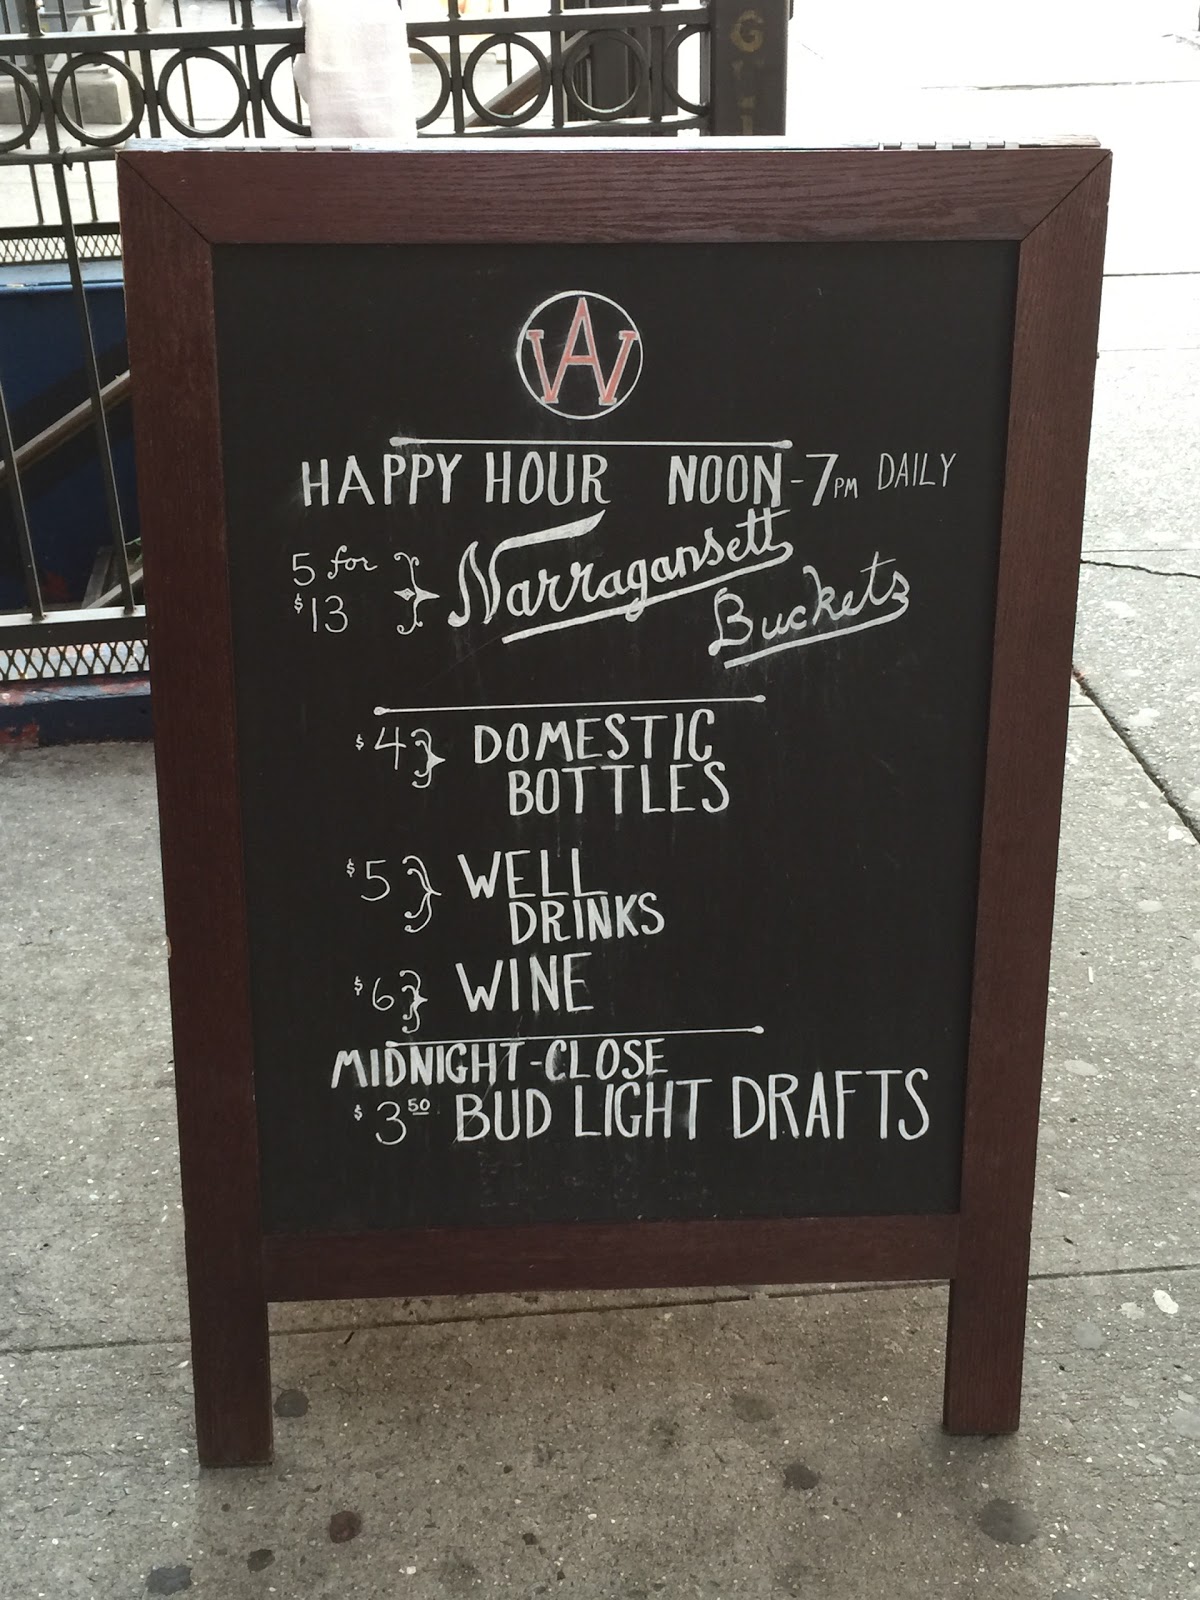 WA
HAPPY HOUR NOON-7PM DAILY
5 for
$13
Narragansett
Buckets
$4} DOMESTIC
BOTTLES
$5} WELL
DRINKS
$6} WINE
MIDNIGHT-CLOSE
$3 50 BUD LIGHT DRAFTS